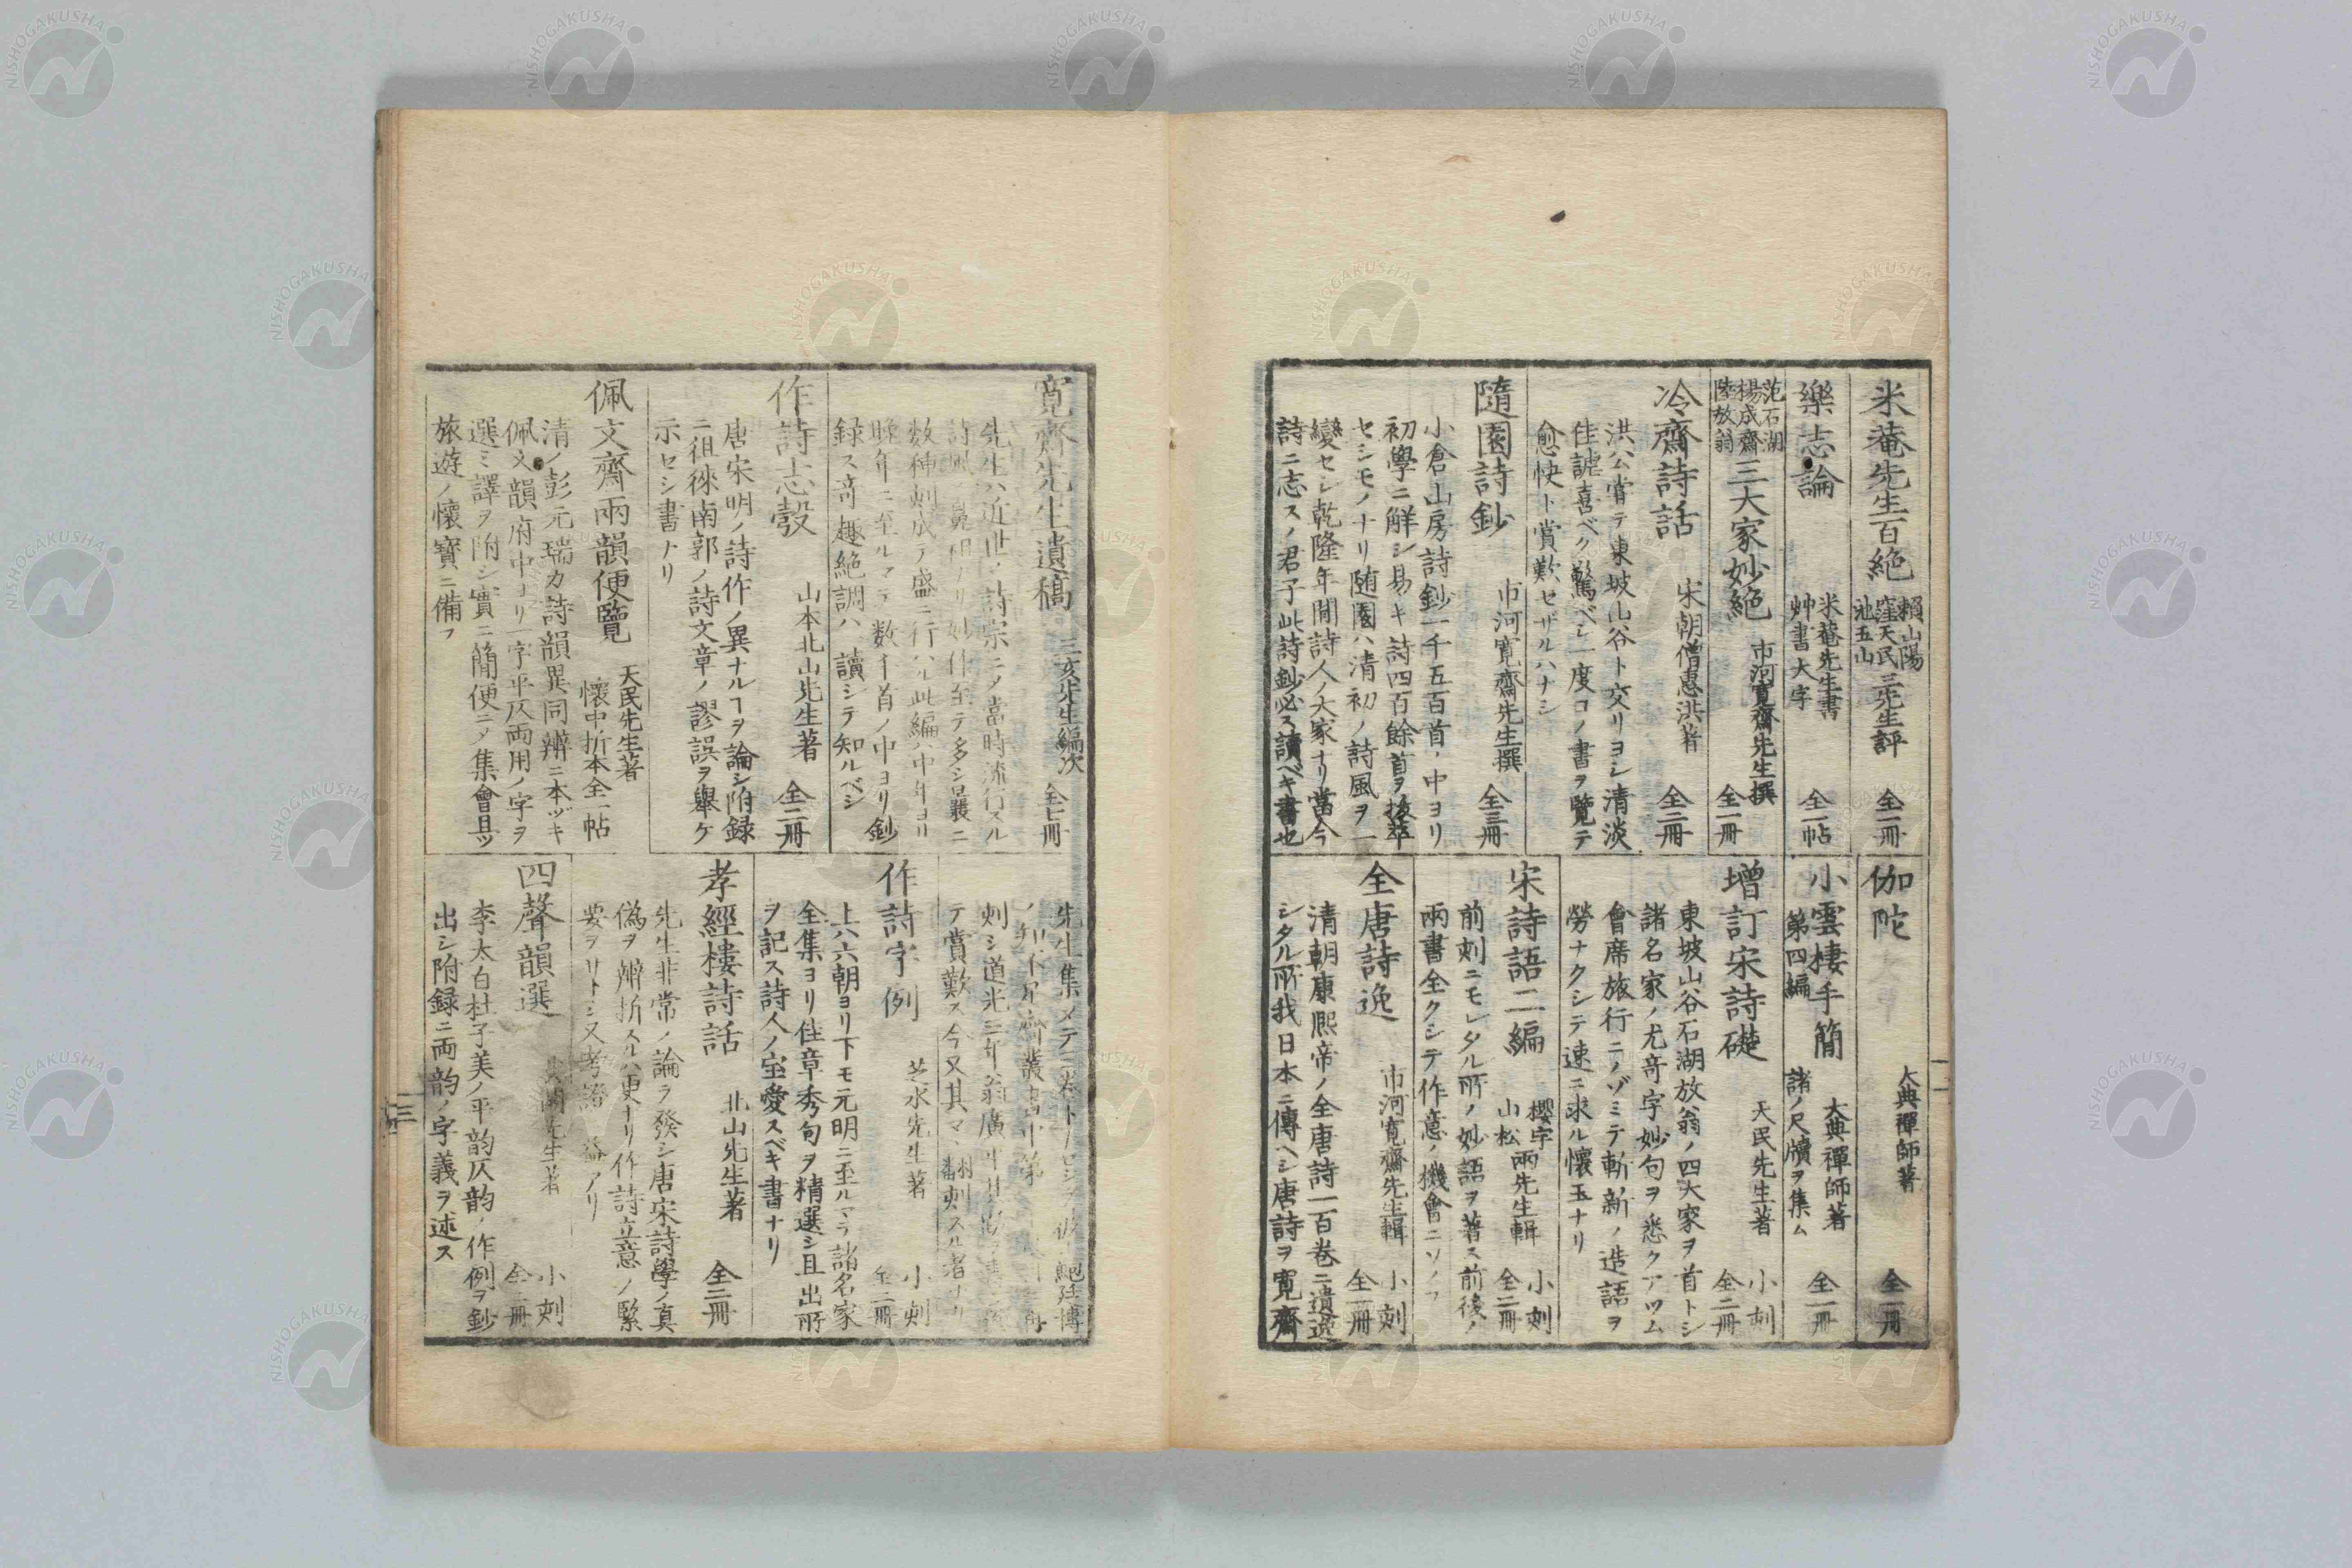 米菴先生百絶 賴山陽 窪天民 池五山 三先生評 全一冊
樂志論 米菴先生書 艸書大字 全一帖
范石湖 楊成齋 陸放翁 三大家妙絶 市河寛齋先生撰 全一冊
冷齋詩話 宋朝僧惠洪著 全二冊
洪公嘗テ東坡山谷ト交リヨシ清淡
佳謔喜ベク驚ベシ一度コノ書ヲ覽テ
愈快ト賞歎セザルハナシ
隨園詩鈔 市河寛齋先生撰 全三冊
小倉山房詩鈔一千五百首ノ中ヨリ
初學ニ解シ易キ詩四百餘首ヲ抜萃
セシモノナリ随園ハ清初ノ詩風ヲ一
變セシ乾隆年間詩人ノ大家ナリ當今
詩ニ志スノ君子此詩鈔必ス讀ベキ書也
伽陀 大典禪師著 全一冊
小雲棲手簡 第四編 大典禪師著 諸ノ尺牘ヲ集ム 全一冊
增訂宋詩礎 天民先生著 小刻 全二冊
東坡山谷石湖放翁ノ四大家ヲ首トシ
諸名家ノ尤奇字妙句ヲ悉クアツム
會席旅行ニノゾミテ斬新ノ造語ヲ
勞ナクシテ速ニ求ル懷玉ナリ
宋詩語二編 櫻宇 山松 兩先生輯 小刻 全二冊
前刻ニモレタル所ノ妙語ヲ著ス前後ノ
兩書全クシテ作意ノ機會ニソノフ
全唐詩逸 市河寛齋先生輯 小刻 全一冊
清朝康熙帝ノ全唐詩一百卷ニ遺逸
シタル所我日本ニ傳ヘシ唐詩ヲ寛齋
二
寛齋先生遺稿 三亥先生編次 全七冊
先生ハ近世ノ詩宗ニメ當時流行スル
詩風ノ鼻祖ナリ妙作至テ多シ曩ニ
数種刻成テ盛ニ行ハル此編ハ中年ヨリ
晩年ニ至ルマテ数千首ノ中ヨリ鈔
録ス奇趣絶調ハ讀シテ知ルベシ
作詩志彀 山本北山先生著 全二冊
唐宋明ノ詩作ノ異ナルヿヲ論シ附録
ニ徂徠南郭ノ詩文章ノ謬誤ヲ舉ケ
示セシ書ナリ
佩文齋兩韻便覽 天民先生著 懷中折本全一帖
清ノ彭元瑞カ詩韻異同辨ニ本ヅキ
佩文韻府中ヨリ一字平仄両用ノ字ヲ
選ミ譯ヲ附シ實ニ簡便ニメ集會且ツ
旅遊ノ懷寶ニ備フ
先生集メテ三卷ト
ノ知不足齋叢書中第
刻シ道光三年翁廣平
テ賞歎ス今又其マヽ翻刻スル者ナリ
作詩字例 芝水先生著 小刻 全二冊
上ハ六朝ヨリ下モ元明ニ至ルマテ諸名家
全集ヨリ佳章秀句ヲ精選シ且出所
ヲ記ス詩人ノ宝愛スベキ書ナリ
孝經樓詩話 北山先生著 全二冊
先生非常ノ論ヲ發シ唐宋詩學ノ真
僞ヲ辨折スルハ更ナリ作詩立意ノ緊
要ヲサトシ又考證ノ益アリ
四聲韻選 先生著 小刻 全一冊
李太白杜子美ノ平韵仄韵ノ作例ヲ鈔
出シ附録ニ両韵ノ字義ヲ述ス
三
NISHOGAKUSHA